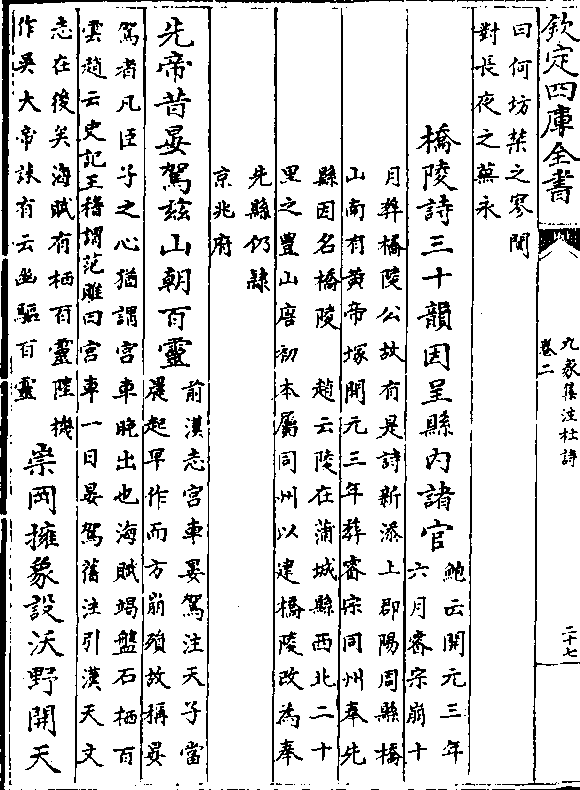 欽定四庫全書
九家集注杜詩
卷二
二十七
曰何坊禁之寥閴
對長夜之蕪永
橋陵詩三十韻因呈縣內諸官
鮑云開元三年
六月睿宗崩十
月葬橋陵公故有是詩新添上郡陽周縣橋
山南有黄帝塚開元三年葬睿宗同州奉先
縣因名橋陵　趙云陵在蒲城縣西北二十
里之豐山唐初本屬同州以建橋陵改為奉
先縣仍隸
京兆府
先帝昔晏駕兹山朝百靈
前漢志宮車晏駕注天子當
晨起早作而方崩殞故稱晏
駕者凡臣子之心猶謂宮車晚出也海賦竭盤石栖百
靈趙云史記王稽謂范雎曰宮車一日晏駕舊注引漢天文
志在後矣海賦有栖百靈陸機
作吳大帝誄有云幽驅百靈
崇岡擁象設沃野開天